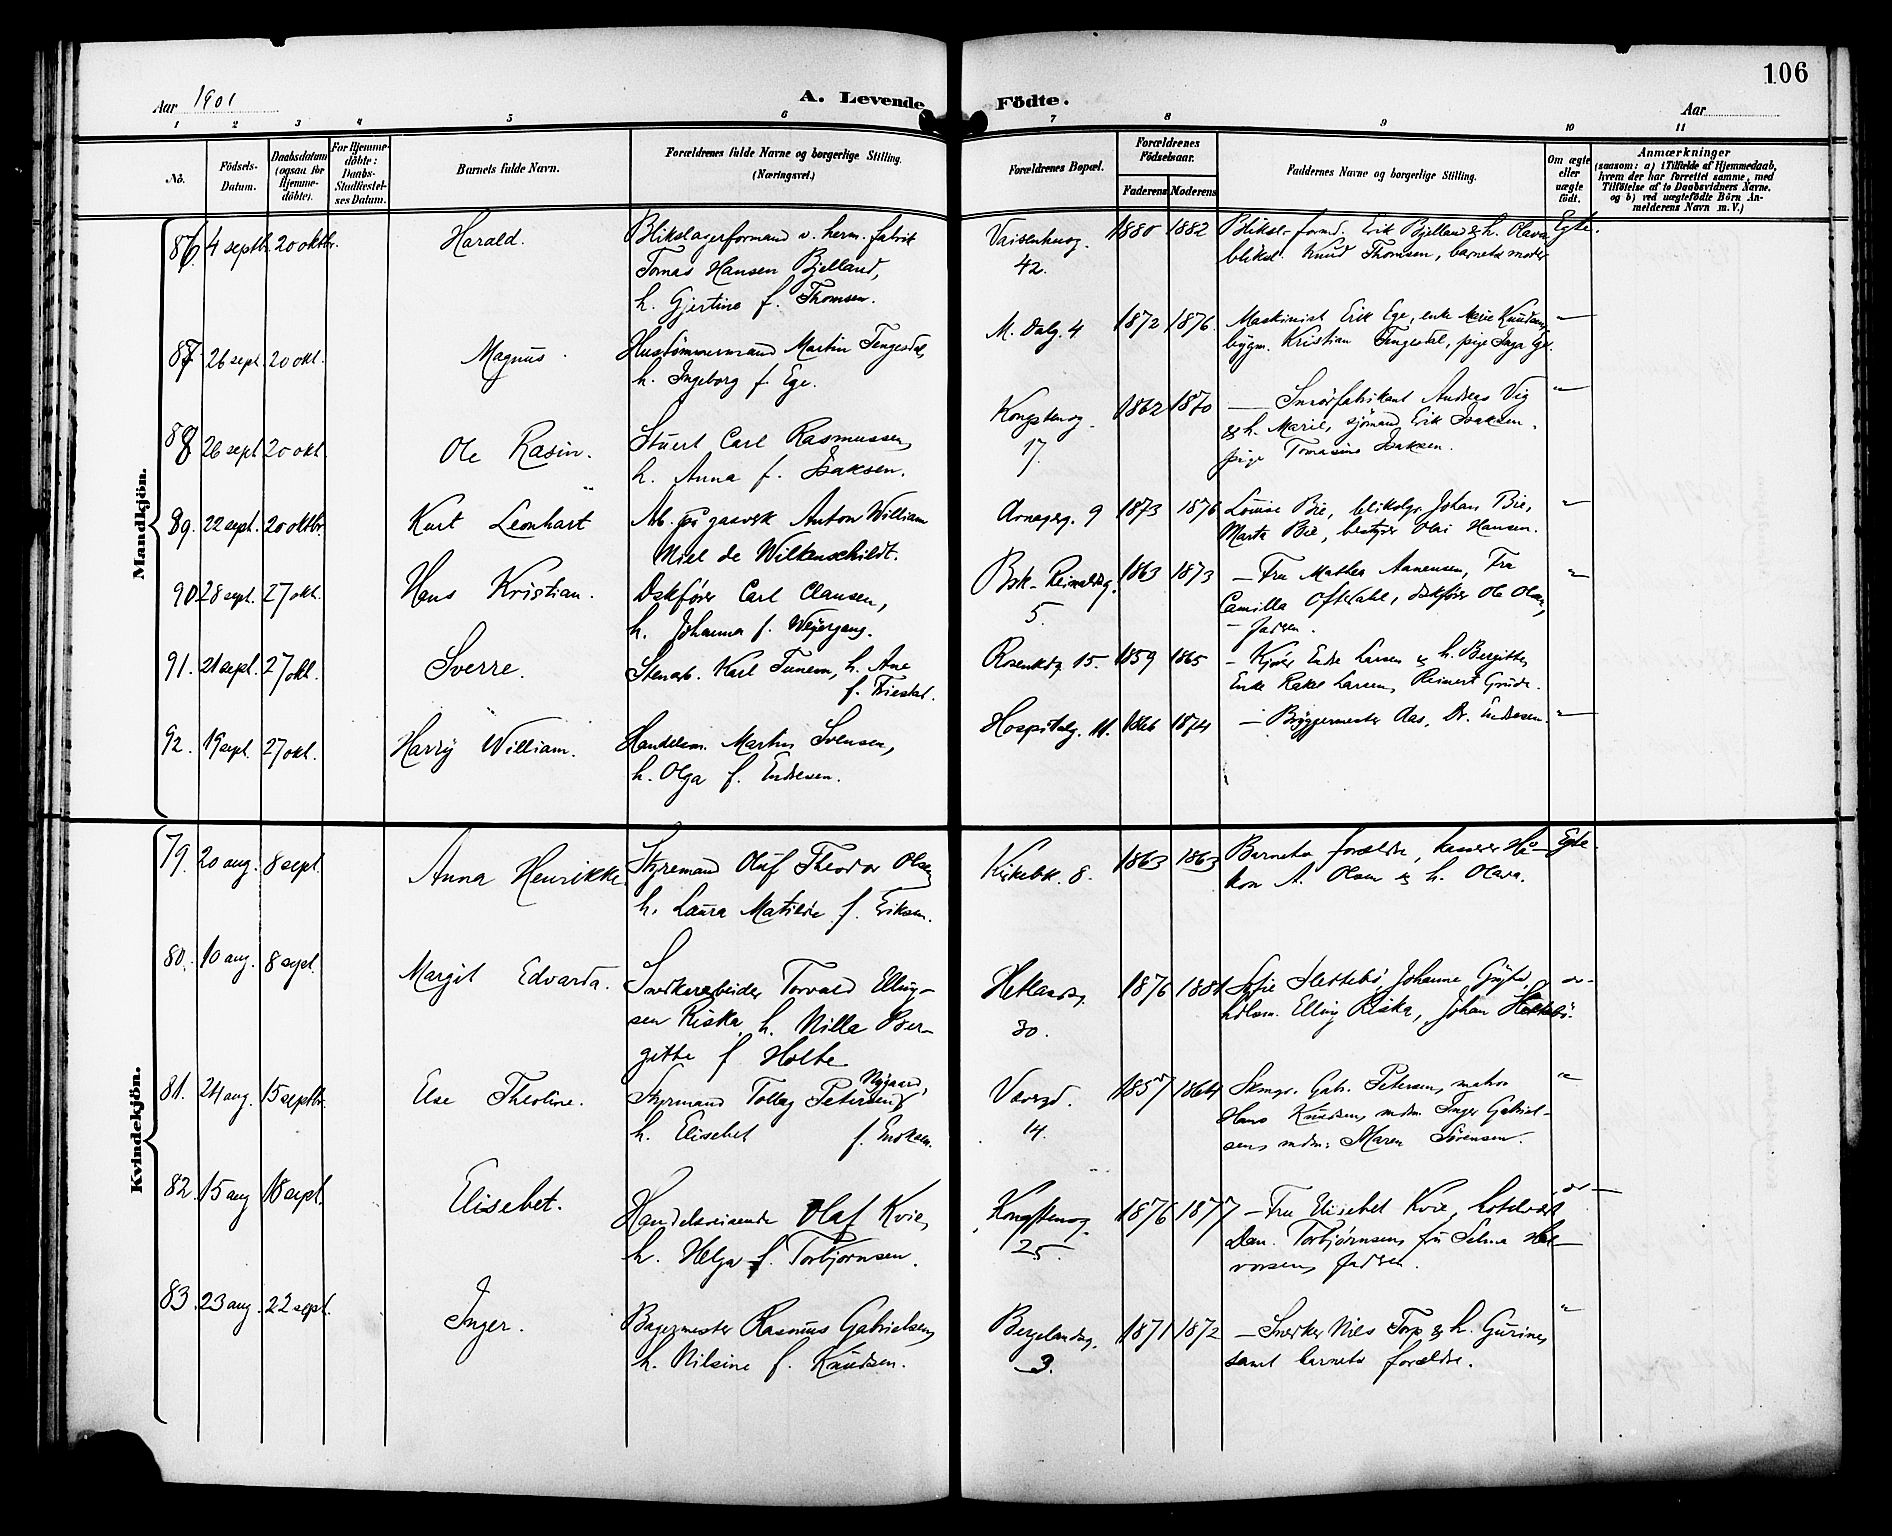 106
Aar 1901
A. Levende Födte.
Aar
1 2 3 4 5 6 7 8 9 10 11
No.
Födsels-Datum.
Daabsdatum (ogsaa for Hjemme-döbte).
For Hjemme-döbte: Daabs-Stadfæstel-ses Datum.
Barnets fulde Navn.
Forældrenes fulde Navne og borgerlige Stilling. (Næringsvei.)
Forældrenes Bopæl.
Forældrenes Födselsaar.
Faderens Moderens
Faddernes Navne og borgerlige Stilling.
Om ægte eller uægte födt.
Anmærkninger
(saasom: a) i Tilfælde af Hjemmedaab, hvem der har forrettet samme, med Tilföielse af to Daabsvidners Navne. og b) ved uægtefödte Börn Anmelderens Navn m. V.)
Mandkjön.
86. 4 septb. 20 oktbr. Harald. Blikslagerformand v. herm. fabrik
Tomas Hansen Bjelland,
h. Gjertine f. Thomsen.
Vaisenhusg. 42. 1880 1882 Bliksl. formd. Erik Bjelland & h. Olava,
bliksl. Knud Thomsen, barnets moder
Egte.
87 26 sept. 20 okt. Magnus. Hustømmermand Martin Tengesdal,
h. Ingeborg f. Ege.
M. Dalg. 4 1872 1876. Maskinist Erik Ege, enke Marie Knudsen,
bygm. Kristian Tengesdal, pige Inga Ege.
"
88 26 sept 20 okt. Ole Rasin. Stuert Carl Rasmussen,
h. Anna f. Isaksen.
Kongstenog. 17. 1862 1870 — Smörfabrikant Andreas Vig
& h. Marie, sjömand Erik Isaksen,
pige Tomasine Isaksen.
"
89. 22 sept. 20 oktbr. Kurt Leonhart Arb. på gasverk Anton William
Miel de Wilkenschildt.
Arnagerg. 9 1873 1876 Louise Bie, blikslgr. Johan Bie,
Marta Bie, bestyrer Olai Hansen.
"
90. 28 sept. 27 okt. Hans Kristian. Dskfører Carl Clausen,
h. Johanna f. Weyergang.
5. 1863 1873 — Fru Mathea Aanensen, Fru
Camilla Oftedahl, dskfører Ole Olsen,
— faderen.
"
91. 21 sept. 27 okt. Sverre. Stenarb. Karl Tunem, h. Ane
f. Tiestal.
Rosenkdg. 15. 1859 1865 — Kjører Endre Larsen & h. Bergitte,
Enke Rakel Larsen, Reinert Grude.
92. 19 sept. 27 okt. Harry William. Handelsm. Martin Svensen,
h. Olga f. Endresen.
Hospitalg. 11. 1866 1874 — Bryggermester Aas, Dr. Endresen.
"
Kvindekjön.
79. 20 aug. 8 sept. Anna Henrikke. Styremand Oluf Theodor Olsen,
h. Laura Matilde f. Eriksen.
Kirkebk. 8. 1863 1863 Barnets forældre, kasserer Hå-
kon A. Olsen & h. Olava.
Egte.
80. 10 aug. 8 sept. Margit Edvarda. Snekkerarbeider Torvald Elling-
sen Riska, h. Nilla Ber-
gitte f. Holte
Hetlandsg. 30. 1876 1881 Sofie Slettebö, Johanne
hdlsm. Elling Riska, Johan Slettebö.
"
81. 24 aug. 15 septbr. Else Theoline. Styrmand Tollag Petersen Nygaard,
h. Elisebet f. Enoksen.
14. 1857 1864 Skmgr. Gab. Petersen, matros
Hans Knudsen, mdm. Inger Gabriel-
sen, mdm. Maren Sörensen.
"
82. 15 aug 18 sept. Elisebet. Handelsreisende Olaf Kvie,
h. Helga f. Torbjörnsen.
Kongstenog. 25. 1876 1877 — Fru Elisebet Kvie, hotelvært
Dan. Torbjørnsen, fru Selma Hal-
vorsen, faderen.
"
83. 23 aug. 22 sept. Inger. Bagermester Rasmus Gabrielsen,
h. Nilsine f. Knudsen.
Bergelandsg. 3. 1871 1872 — Snekker Nils Torp & h. Gurine,
samt barnets forældre.
"